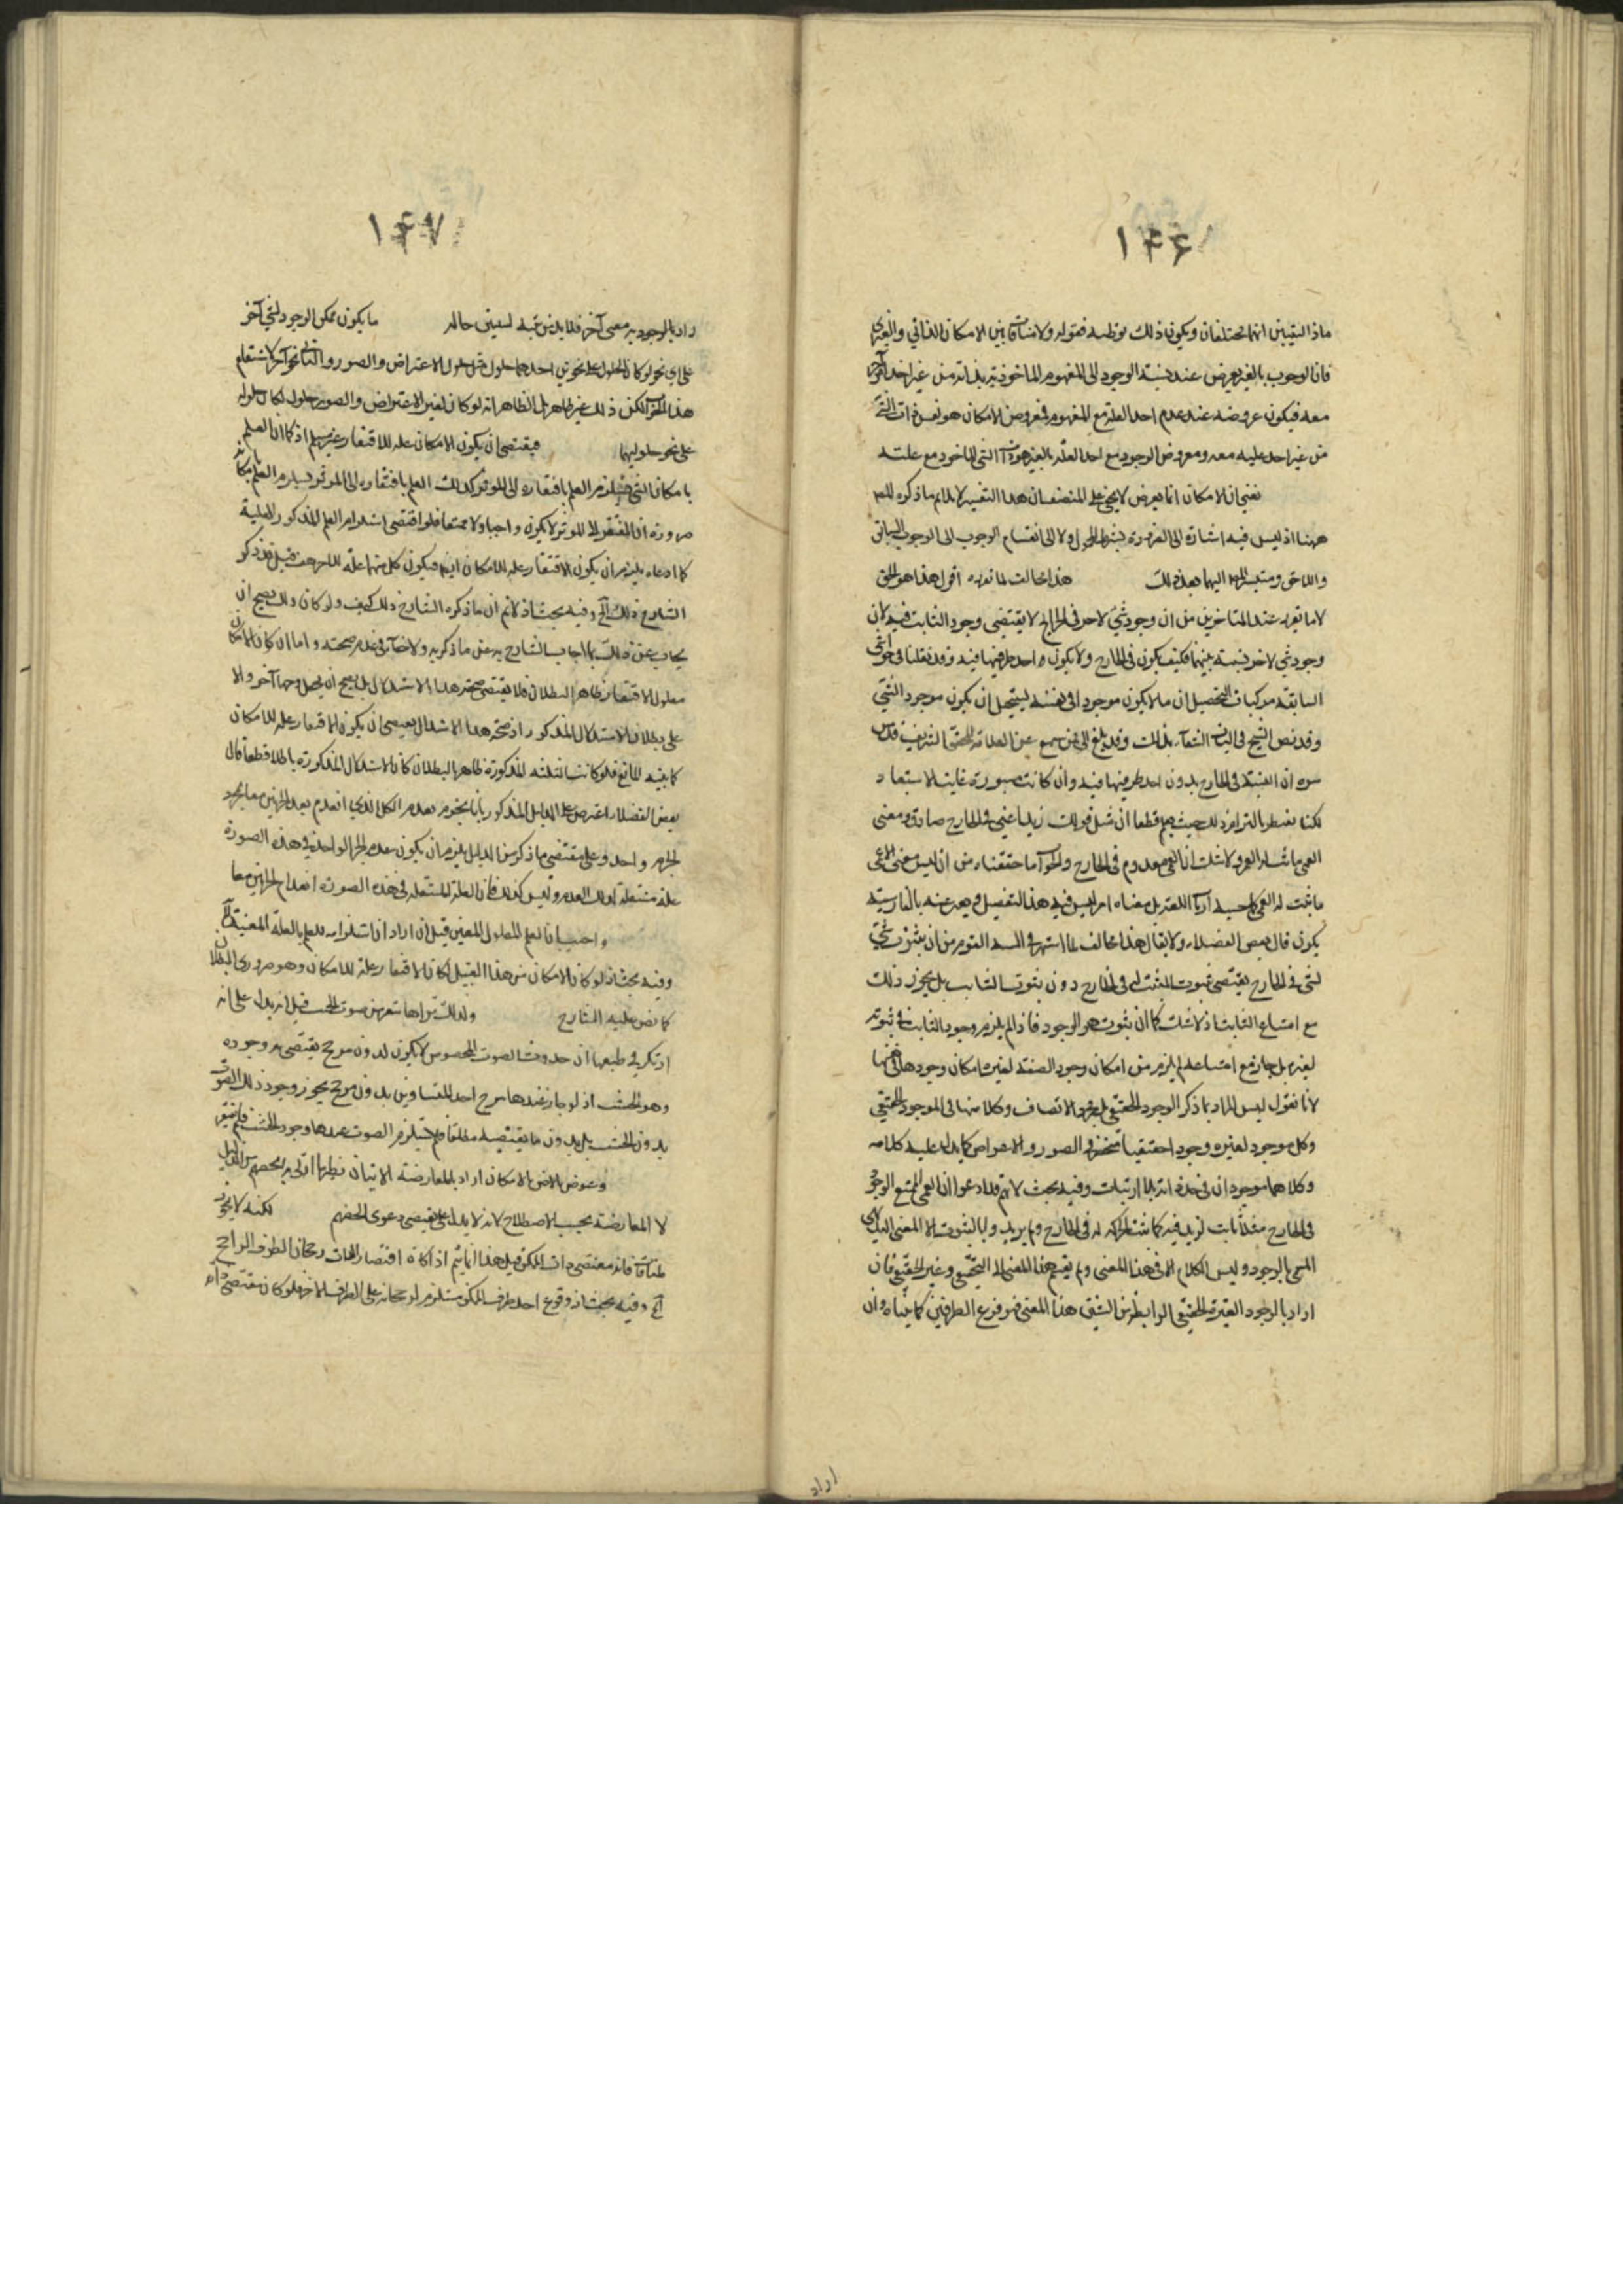 ١٤٦
ماذا تبين انهما مختلفان ويكون ذلك توطية فقوله ولا منافاة بين الامكان الذاتي والغيري
فان الوجوب بالغير يعرض عند نسبة الوجود الى المفهوم الماخوذ بذاته من غير اخذ آخر
معه فيكون عروضه عند عدم اخذ العلة مع المفهوم فمعروض الامكان هو نفس ذات الشئ
من غير اخذ علية معه ومعروض الوجود مع اخذ العلة بالغير هو ذات الشئ الماخوذ مع علته
يعني ان الامكان انما يعرض لا يخفى على المنصف ان هذا التفسير لا يلايم ما ذكره
ههنا اذ ليس فيه اشارة الى الضرورة بشرط المحمول ولا الى انقسام الوجوب الى الوجوب السابق
واللاحق اليهما بعد ذلك هذا مخالف لما تقرر اقول هذا هو الحق
لا ما تقرر عند المتاخرين من ان وجود شئ لاخر في الخارج لا يقتضي وجود الثابت فيه لان
وجود شئ لاخر نسبة بينهما فكيف يكون في الخارج ولا يكون احد طرفيها فيه وقد نقلنا في حواشي
السابقة من كتاب التحصيل ان ما لا يكون موجودا في نفسه يستحيل ان يكون موجودا لشئ
وقد نص الشيخ في الهيات الشفآء بذلك وقد بلغ الى من سمع عن العلامة المحقق الشريف قدس
سره ان النسبة في الخارج بدون احد طرفيها فيه وان كانت ضرورة غاية الاستبعاد
لكنا نضطر بالتزام ذلك حيث نعلم قطعا ان مثل قولك زيد اعمى في الخارج صادق ومعنى
العمى ما شانه العرف ولا شك ان العمى معدوم في الخارج والجواب ما حققناه من ان ليس معنى الاعمى
ما ثبت له العمى بل معناه امر ليس فيه هذا التفصيل ويعبر عنه بالفارسية
يكون قال بعض الفضلاء ولا يقال هذا مخالف لما اشتهر في السنة القوم من ان ثبوت شئ
لشئ في الخارج يقتضي ثبوت المثبت له في الخارج دون ثبوت الثابت بل يجوز ذلك
مع امتناع الثابت اذ لا شك كما ان ثبوت هو الوجود فاذا لم يلزم وجود الثابت في ثبوته
لغيره بل جاز مع امتناعه لم يلزم من امكان وجود الصفة لغيره امكان وجودها في نفسها
لانا نقول ليس المراد بما ذكر الوجود الحقيقي بل مجرد الاتصاف وكلامنا في الموجود الحقيقي
وكل موجود لغيره وجودا حقيقيا منحصر في الصور والاعراض كما يدل عليه كلامه
وكلاهما موجودان في حد ذاته بلا ارتياب وفيه بحث لانهم قد ادعوا ان العمى الممتنع الوجود
في الخارج مثلا ثابت لزيد فيه كما تثبت الحركة له في الخارج ولم يريدوا بالثبوت الا المعنى
المسمى بالوجود وليس الكلام الا في هذا المعنى ولم ينقسم هذا المعنى الى الحقيقي وغير الحقيقي فان
اراد بالوجود الغير الحقيقي الرابط من الشيئين هذا المعنى فهو فرع الطرفين كما بيناه وان
اراد
١٤٧
راد بالوجود به معنى آخر فلا بد من بيانه ليتبين حاله ما يكون ممكن الوجود لشئ آخر
على اي نحو لو كان الحلول على نحوين احدهما حلول مثل حلول الاعراض والصور والثاني نحو آخر لاستقام
هذا الجواب لكن ذلك غير ظاهر بل الظاهر انه لو كان لغير الاعراض والصور حلول لكان حلوله
على نحو حلوليهما فيقتضي ان يكون الامكان علة للافتقار غير مسلم اذ كما ان العلم
بامكان الشئ يستلزم العلم بافتقاره الى المؤثر كذلك العلم بافتقاره الى المؤثر يستلزم العلم بامكانه
ضرورة ان المفتقر الى المؤثر لا يكون واجبا ولا ممتنعا فلو اقتضى استلزام العلم المذكور العلية
كما ادعاه يلزم ان يكون الافتقار علة للامكان ايضا فيكون كل منهما علة للاخر هف قيل قد ذكر
الشارح ذلك الخ وفيه بحث اذ لا نم ان ما ذكره الشارح ذلك كيف ولو كان ذلك يصح ان
يجاب عن ذلك بما اجاب الشارح به عن ما ذكر به ولا خفآء في عدم صحته واما ان كون الامكان
معلول الافتقار ظاهر البطلان فلا يقتضي صحة هذا الاستدلال بل يصح ان يجعل وجها آخر والا
على بطلان الاستدلال المذكور اذ صحة هذا الاستدلال يقتضي ان يكون الافتقار علة للامكان
كما بينه المانع فلو كانت القضية المذكورة ظاهر البطلان كان الاستدلال المذكورة باطلا قطعا قال
بعض الفضلاء اعترض على الدليل المذكور بانا نجزم بعدم الكل الذي انعدم بعد الجزئين معا بمجرد
الجزم واحد وعلى مقتضى ما ذكر من الدليل يلزم ان يكون عدم الجزء الواحد في هذه الصورة
علة مستقلة لذلك العدم وليس كذلك فان العلة المستقلة في هذه الصورة انعدام الجزئين معا
واجيب بان العلم المعلول المعين قيل ان اراد ان استلزامه للعلم بالعلة المعينة الخ
وفيه بحث اذ لو كان الامكان من هذا القبيل لكان الافتقار علة للامكان وهو ضروري البطلان
كما نص عليه الشارح ولذلك تراها تنفر من صوت الخشب قيل انه يدل على انه
ارتكز في طبعها ان حدوث الصوت المخصوص لا يكون بدون مرجح يقتضي وجوده
وهو الخشب اذ لو جاز عندها ترجح احد المتساويين بدون مرجح يجوز وجود ذلك الصوت
بدون الخشب بل بدون ما يقتضيه مطلقا فلم يستلزم الصوت عندها وجود الخشب فلم تنفر
وعورض الامكان اراد بالمعارضة الاتيان بنظيرها اتى به الخصم من الدليل
لا المعارضة بحسب الاصطلاح لانه لا يدل على نقيض دعوى الخصم لكنه لا يجوز
لمنافاته مقتضى ذات الممكن قيل هذا انما يتم اذا كان اقتضاء الذات رجحان الطرف الراجح
الخ وفيه بحث اذ وقوع احد طرفي الممكن مستلزم لرجحانه على الطرف الاخر فلو كان مقتضى ذاته